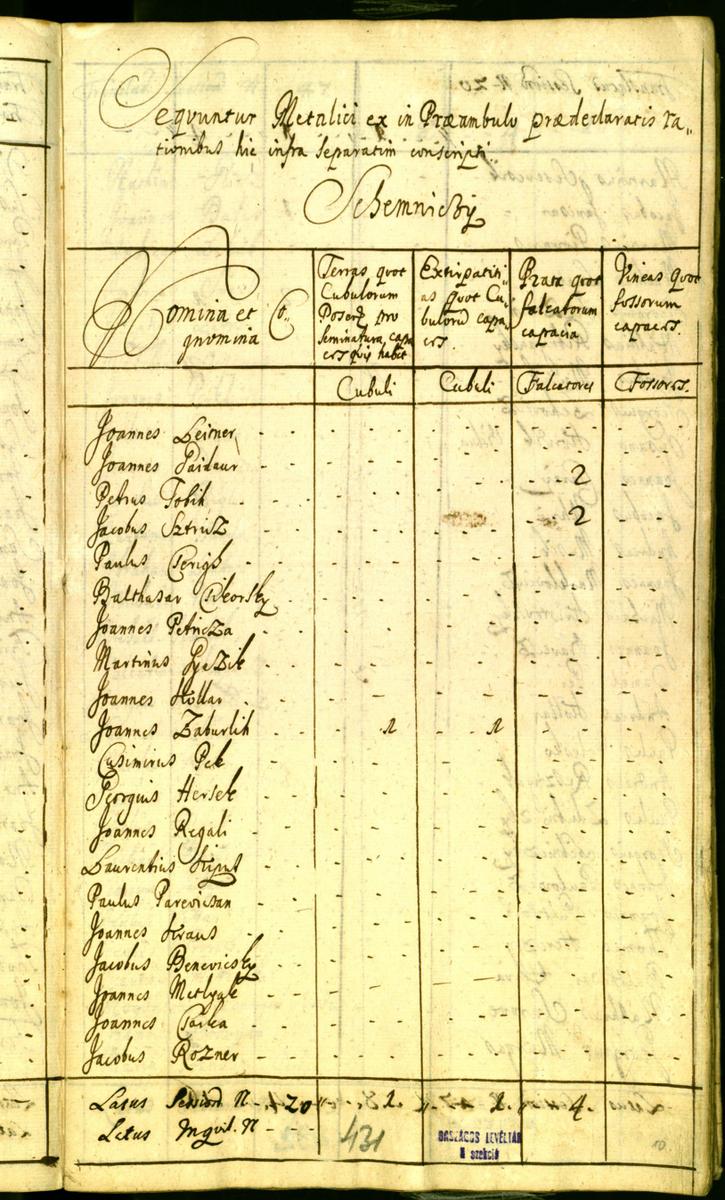 Seqvuntur Metalici ex in Præambulo prædeclaratis ra„
tionibus hic infra separatim conscripti
Schemniczy
Nomina et Co„
gnomina
Terras quot
Cubulorum
Poson: pro
seminatura, capa
ces quis habet
Extirpatiti„
as quot Cu„
bulorū capa„
ces.
Prata quot
falcatorum
capacia
Vineas quot
fossorum
capaces.
Cubuli Cubuli Falcatores Fossores.
Joannes Leitner - - - - - -
Joannes Paidaur - - - - 2 -
Petrus Tobik - - - - - -
Jacobus Sztruz - - - - 2 -
Paulus - - - - - -
Balthasar - - - - -
Joannes Petricza - - - - - -
Martinus - - - - - -
Joannes Hollar - - - - - -
Joannes Zaburlih - - 1 - 1 - - -
Casimirus Pek - - - - - -
Georgius Hersek - - - - - -
Joannes Regali - - - - - -
Laurentius - - - - - -
Paulus Parevicsan - - - - - -
Joannes Kraus - - - - - -
Jacobus Benevicsky - - - - - -
Joannes Metlyak - - - - - -
Joannes - - - - - -
Jacobus Rozner - - - - - -
Latus Session N - 20 1. 1. 4.
Latus Inqvil. N - - -
431
ORSZÁGOS LEVÉLTÁR
N szekció
10